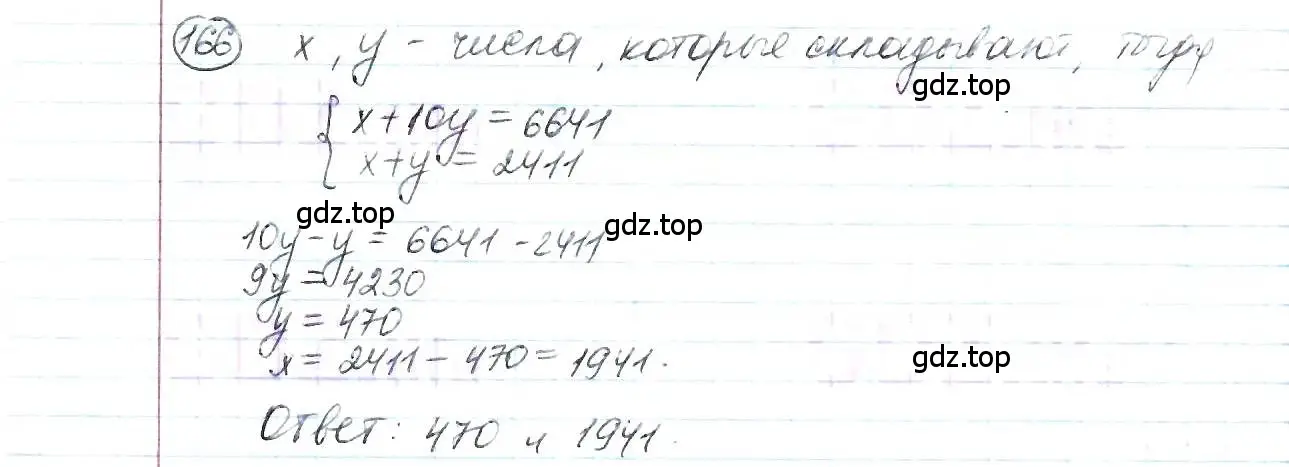 166 x, y - числа, которые складывают, тогда
gdz.top
{ x+10y = 6641
x+y = 2411
gdz.top
gdz.top
10y-y = 6641-2411
9y = 4230
y = 470
x = 2411-470 = 1941.
gdz.top
Ответ: 470 и 1941.